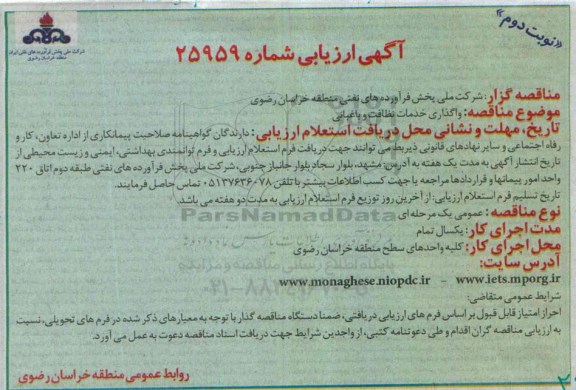 «نوبت دوم»
شرکت ملی پخش فرآورده های نفتی ایران
منطقه خراسان رضوی
آگهی ارزیابی شماره ۲۵۹۵۹
مناقصه گزار: شرکت ملی پخش فرآورده های نفتی منطقه خراسان رضوی
موضوع مناقصه: واگذاری خدمات نظافت و باغبانی
تاریخ، مهلت و نشانی محل دریافت استعلام ارزیابی: دارندگان گواهینامه صلاحیت پیمانکاری از اداره تعاون، کار و
رفاه اجتماعی و سایر نهادهای قانونی ذیربط می توانند جهت دریافت فرم استعلام ارزیابی و فرم توانمندی بهداشتی، ایمنی و زیست محیطی از
تاریخ انتشار آگهی به مدت یک هفته به آدرس: مشهد، بلوار سجاد بلوار جانباز جنوبی، شرکت ملی پخش فرآورده های نفتی طبقه دوم اتاق ۲۲۰
واحد امور پیمانها و قراردادها مراجعه یا جهت کسب اطلاعات بیشتر با تلفن ۰۵۱۳۷۶۳۶۰۷۸ تماس حاصل فرمایند.
تاریخ تسلیم فرم استعلام ارزیابی: از آخرین روز توزیع فرم استعلام ارزیابی به مدت دو هفته می باشد.
نوع مناقصه: عمومی یک مرحله ای
ParsNamadData
مدت اجرای کار: یکسال تمام
محل اجرای کار: کلیه واحدهای سطح منطقه خراسان رضوی
پایگاه اطلاع رسانی مناقصه و مزایده
آدرس سایت:
www.monaghese.niopdc.ir – www.iets.mporg.ir
شرایط عمومی متقاضی:
احراز امتیاز قابل قبول بر اساس فرم های ارزیابی دریافتی، ضمنا دستگاه مناقصه گذار با توجه به معیارهای ذکر شده در فرم های تحویلی، نسبت
به ارزیابی مناقصه گران اقدام و طی دعوتنامه کتبی، از واجدین شرایط جهت دریافت اسناد مناقصه دعوت به عمل می آورد.
روابط عمومی منطقه خراسان رضوی